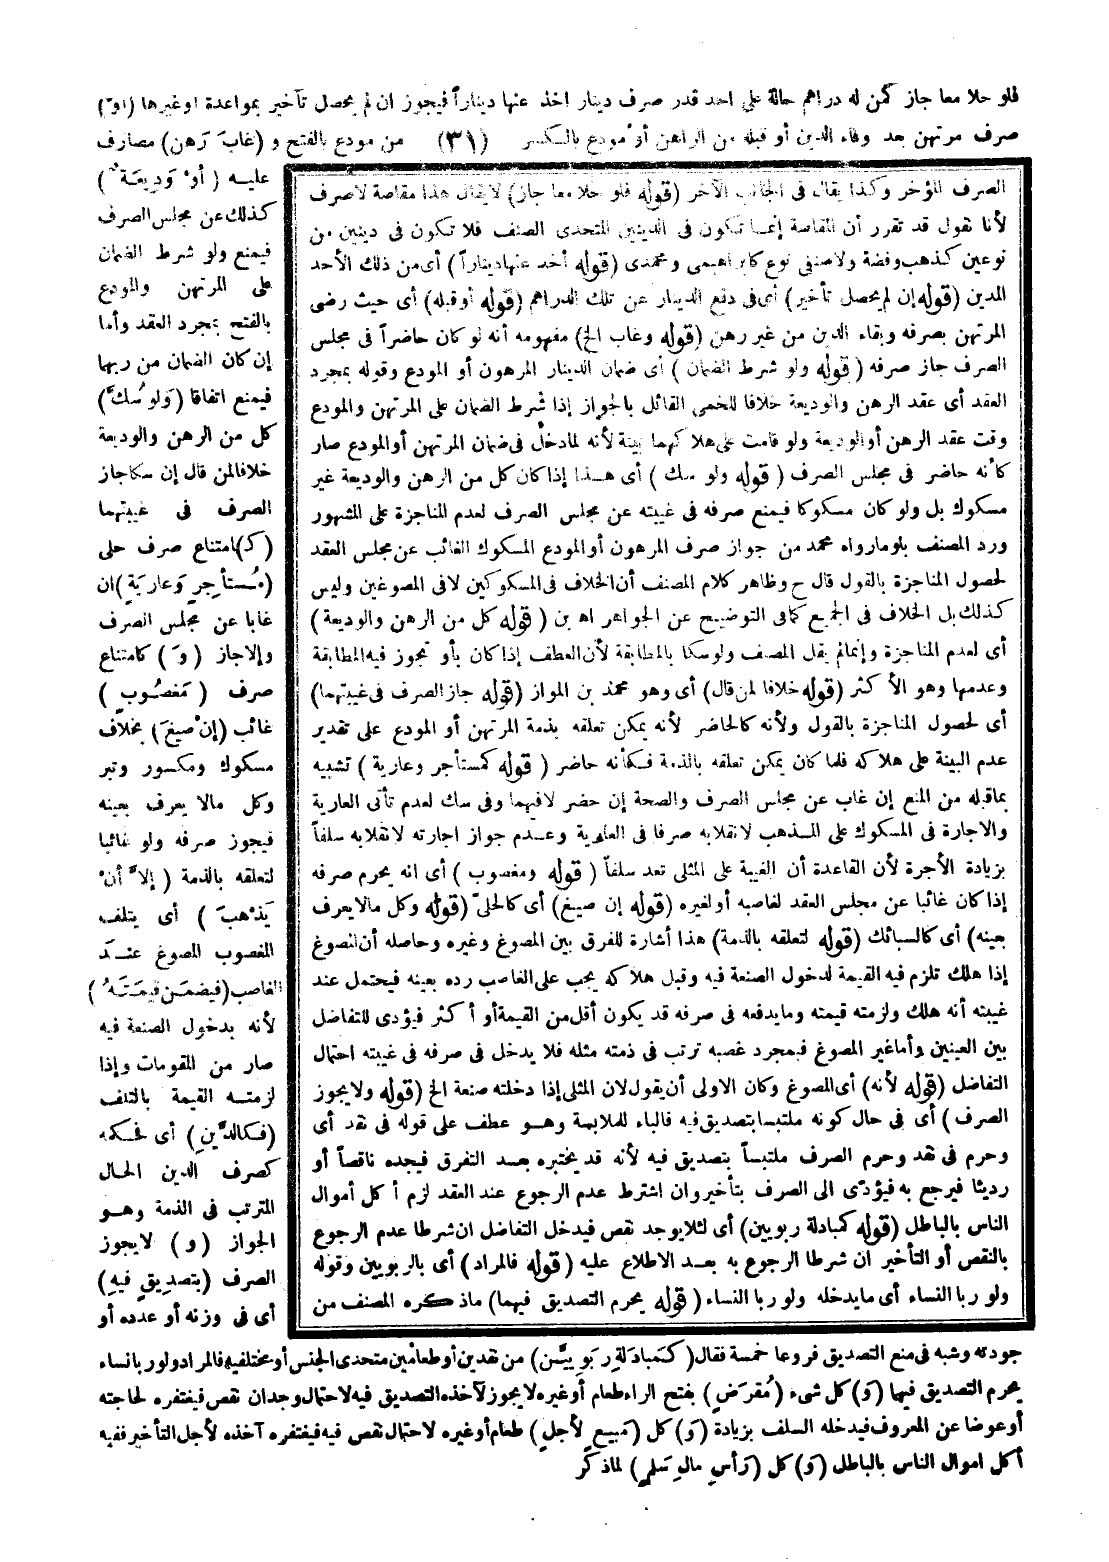 فلو حلا معا جاز كمن له دراهم حالة على احد قدر صرف دينار اخذ عنها ديناراً فيجوز ان لم يحصل تأخير بمواعدة اوغيرها (اوْ)
صرف مرتهن بعد وفاء الدين أو قبله من الراهن أو مودع بالكسر (٣١) من مودع بالفتح و (غابَ رَهن) مصارف
عليه (أوْ وَدِيعَةٌ)
كذلك عن مجلس الصرف
فيمنع ولو شرط الضمان
على المرتهن والمودع
بالفتح بمجرد العقد وأما
إن كان الضمان من ربها
فيمنع اتفاقا (وَلو سُكَّ)
كل من الرهن والوديعة
خلافا لمن قال إن سكا جاز
الصرف فى غيبتهما
(كَ)امتناع صرف حلى
(مُستأجِرٍ وَعارِيَةٍ) ان
غابا عن مجلس الصرف
وإلا جاز (وَ) كامتناع
صرف (مَغصُوبٍ)
غائب (إنْ صِيغَ) بخلاف
مسكوك ومكسور وتبر
وكل مالا يعرف بعينه
فيجوز صرفه ولو غائبا
لتعلقه بالذمة (إلاَّ أنْ
يَذْهبَ) أى يتلف
المغصوب المصوغ عند
الغاصب (فيضمَن قيمَتَهُ)
لأنه بدخول الصنعة فيه
صار من المقومات وإذا
لزمته القيمة بالتلف
(فكالدَّينِ) أى فحكمه
كصرف الدين الحال
المترتب فى الذمة وهو
الجواز (و) لايجوز
الصرف (بتصدِيقٍ فيهِ)
أى فى وزنه أو عدده أو
الصرف المؤخر وكذا يقال فى الجانب الآخر (قوله فلو حلا معا جاز) لايقال هذا مقاصة لاصرف
لأنا نقول قد تقرر أن المقاصة إنما تكون فى الدينين المتحدى الصنف فلا تكون فى دينين من
نوعين كذهب وفضة ولاصنفى نوع كابراهيمى ومحمدى (قوله أخذ عنها ديناراً) أى من ذلك الأحد
المدين (قوله إن لم يحصل تأخير) أى فى دفع الدينار عن تلك الدراهم (قوله أو قبله) أى حيث رضى
المرتهن بصرفه وبقاء الدين من غير رهن (قوله وغاب الخ) مفهومه أنه لو كان حاضراً فى مجلس
الصرف جاز صرفه (قوله ولو شرط الضمان) أى ضمان الدينار المرهون أو المودع وقوله بمجرد
العقد أى عقد الرهن والوديعة خلافا للخمى القائل بالجواز إذا شُرط الضمان على المرتهن والمودع
وقت عقد الرهن أو الوديعة ولو قامت على هلا كهما بينة لأنه لما دخل فى ضمان المرتهن أو المودع صار
كأنه حاضر فى مجلس الصرف (قوله ولو سك) أى هذا إذا كان كل من الرهن والوديعة غير
مسكوك بل ولو كان مسكوكا فيمنع صرفه فى غيبته عن مجلس الصرف لعدم المناجزة على المشهور
ورد المصنف بلو مارواه محمد من جواز صرف المرهون أو المودع المسكوك الغائب عن مجلس العقد
لحصول المناجزة بالقول قال ح وظاهر كلام المصنف أن الخلاف فى المسكوكين لا فى المصوغين وليس
كذلك بل الخلاف فى الجميع كما فى التوضيح عن الجواهر اه بن (قوله كل من الرهن والوديعة)
أى لعدم المناجزة وإنما لم يقل المصنف ولو سكا بالمطابقة لأن العطف إذا كان بأو تجوز فيه المطابقة
وعدمها وهو الأ كثر (قوله خلافا لمن قال) أى وهو محمد بن المواز (قوله جاز الصرف فى غيبتهما)
أى لحصول المناجزة بالقول ولأنه كالحاضر لأنه يمكن تعلقه بذمة المرتهن أو المودع على تقدير
عدم البينة على هلاكه فلما كان يمكن تعلقه بالذمة فكأنه حاضر (قوله كمستأجر وعارية) تشبيه
بماقبله من المنع إن غاب عن مجلس الصرف والصحة إن حضر لا فيهما وفى سك لعدم تأتى العارية
والاجارة فى المسكوك على المذهب لانقلابه صرفا فى العارية وعدم جواز اجارته لانقلابه سلفاً
بزيادة الأجرة لأن القاعدة أن الغيبة على المثلى تعد سلفاً (قوله ومغصوب) أى انه يحرم صرفه
إذا كان غائبا عن مجلس العقد لغاصبه أو لغيره (قوله إن صيغ) أى كالحلىّ (قوله وكل مالا يعرف
بعينه) أى كالسبائك (قوله لتعلقه بالذمة) هذا أشارة للفرق بين المصوغ وغيره وحاصله أن المصوغ
إذا هلك تلزم فيه القيمة لدخول الصنعة فيه وقبل هلاكه يجب على الغاصب رده بعينه فيحتمل عند
غيبته أنه هلك ولزمته قيمته ومايدفعه فى صرفه قد يكون أقل من القيمة أو أ كثر فيؤدى للتفاضل
بين العينين وأما غير المصوغ فبمجرد غصبه ترتب فى ذمته مثله فلا يدخل فى صرفه فى غيبته احتمال
التفاضل (قوله لأنه) أى المصوغ وكان الاولى أن يقول لان المثلى إذا دخلته صنعة الخ (قوله ولايجوز
الصرف) أى فى حال كونه ملتبسا بتصديق فيه فالباء للملابسة وهو عطف على قوله فى نقد أى
وحرم فى نقد وحرم الصرف ملتبساً بتصديق فيه لأنه قد يختبره بعد التفرق فيجده ناقصاً أو
رديئا فيرجع به فيؤدى الى الصرف بتأخير وان اشترط عدم الرجوع عند العقد لزم أ كل أموال
الناس بالباطل (قوله كمبادلة ربويين) أى لئلا يوجد نقص فيدخل التفاضل ان شرطا عدم الرجوع
بالنقص أو التأخير ان شرطا الرجوع به بعد الاطلاع عليه (قوله فالمراد) أى بالربويين وقوله
ولو ربا النساء أى مايدخله ولو ربا النساء (قوله يحرم التصديق فيهما) ماذكره المصنف من
جودته وشبه فى منع التصديق فروعا خمسة فقال (كمبادَلةِ رِبَوِيـَّين) من نقدين أو طعامين متحدى الجنس أو مختلفيه فالمراد ولو ربا نساء
يحرم التصديق فيها (وَ) كل شىء (مُقرَضٍ) بفتح الراء طعام أو غيره لا يجوز لآخذه التصديق فيه لاحتمال وجدان نقص فيغتفره لحاجته
أو عوضا عن المعروف فيدخله السلف بزيادة (وَ) كل (مَبيعٍ لأجلٍ) طعام أو غيره لاحتمال نقص فيه فيغتفره آخذه لأجل التأخير ففيه
أكل اموال الناس بالباطل (وَ) كل (رَأسِ مالِ سَلمٍ) لما ذكر